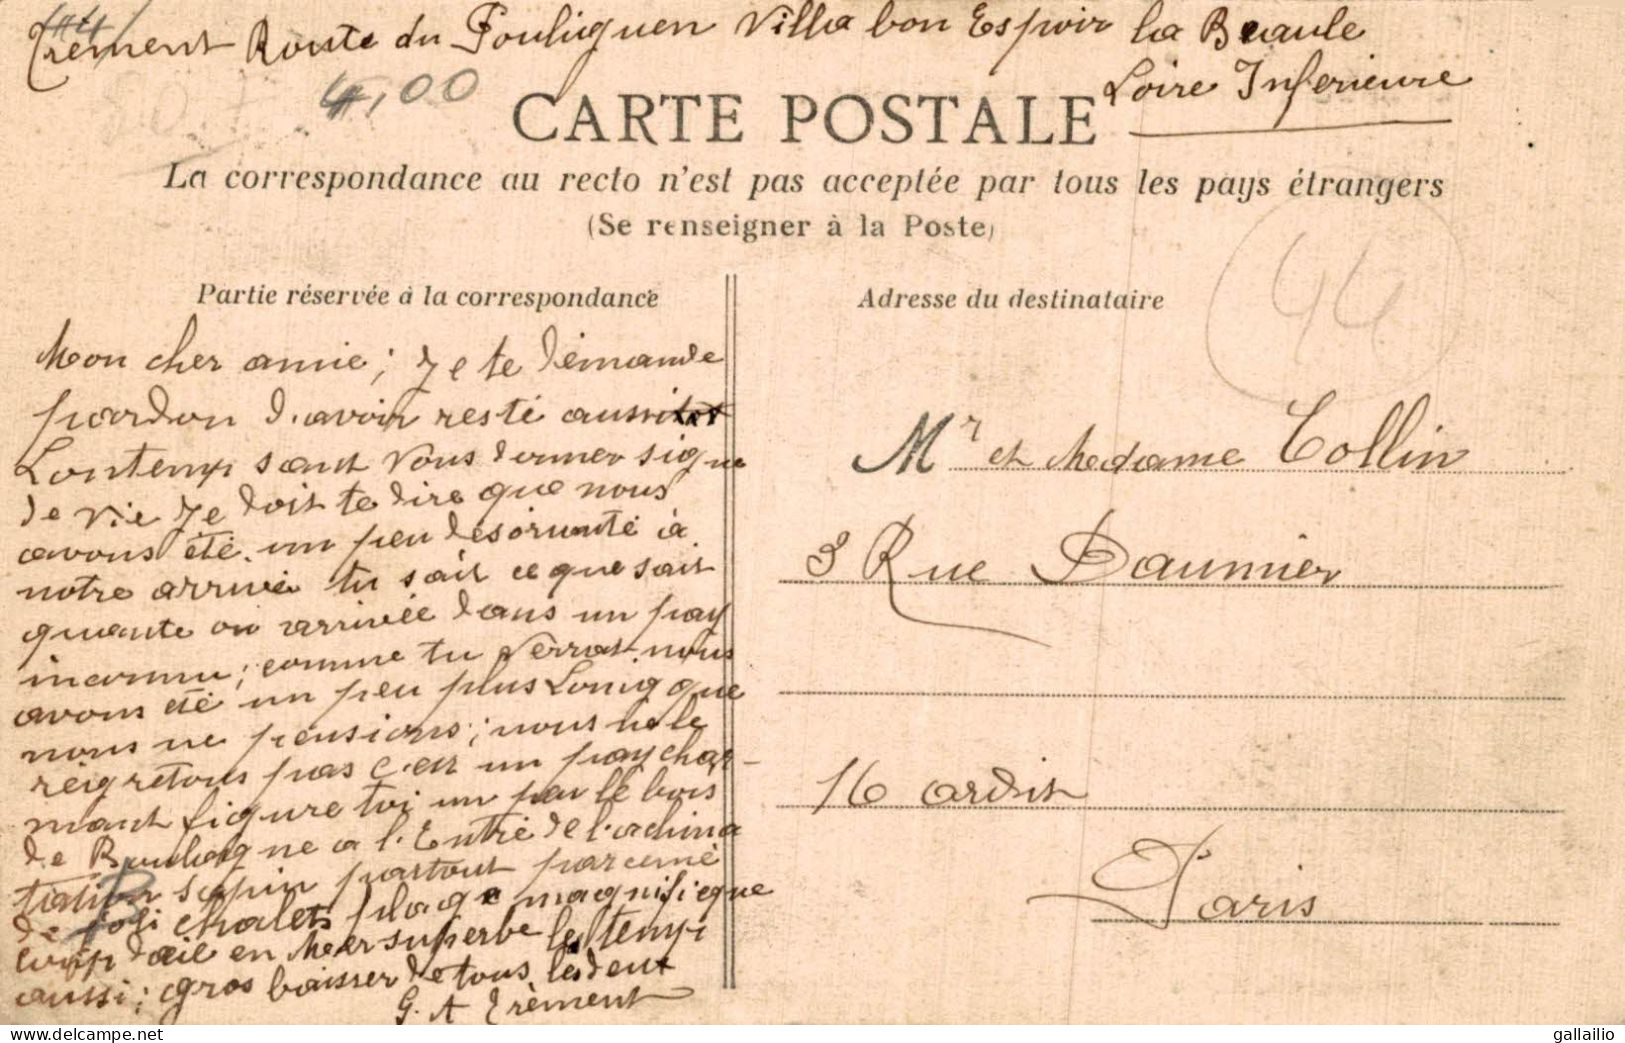 44
Trement Route du Pouliguen Villa bon Espoir la Beaule
Loire Inferieure
4,00
CARTE POSTALE
La correspondance au recto n'est pas acceptée par tous les pays étrangers
(Se renseigner à la Poste)
Partie réservée à la correspondance
Mon cher amie; Je te démande
pardon d'avoir resté aussi
Lontemp sant vous donner signe
de vie Je doit te dire que nous
avons été un peu désorienté à
notre arrivé tu sait ce que sait
quante on arrivée dans un pay
inconnu; comme tu verrat nous
avons été un peu plus Lonig que
nous ne pensions; nous ne le
réigretons pas c'est un pay char-
mant figure toi un peu le bois
de Boulogne a l'Entré de l'aclima
tation sapin partout parcemé
de joli chalets plage magnificque
coup d'œil en Meer superbe le temp
aussi; gros baisser de tous les deux
G. A Trèment
Adresse du destinataire
44
Mr et Madame Collin
3 Rue Daumier
16 ardit
Paris
gallailio